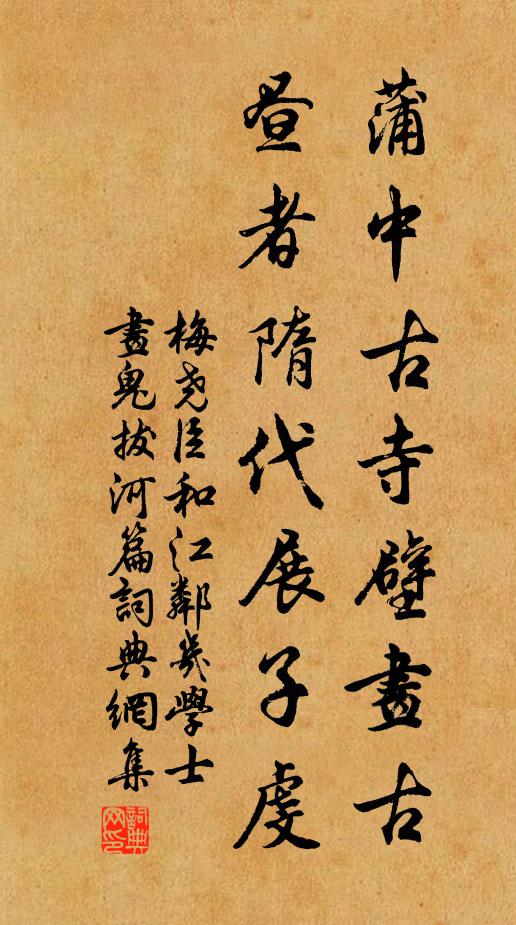 蒲中古寺壁畫古
昼者隋代展子虔
梅尧臣和江鄰幾學士
畫鬼拔河篇詞典網集
詞典网印